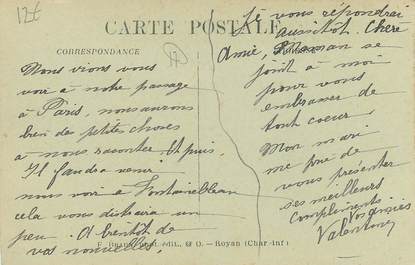 12€
CARTE POSTALE
CORRESPONDANCE
Nous irons vous
voir à notre passage
à Paris, nous aurons
bien de petites choses
à nous raconter. Et puis,
Il faudra venir
nous voir à Fontainebleau
cela vous distraira un
peu. A bientôt de
vos nouvelles,
Je vous répondrai
aussitôt. Chère
Amie, Maman se
joint à moi
pour vous
embrasser de
tout coeur.
Mon mari
me prie de
vous présenter
ses meilleurs
compliments
Vos amies
édit., 6 O. - Royan (Char-Inf)